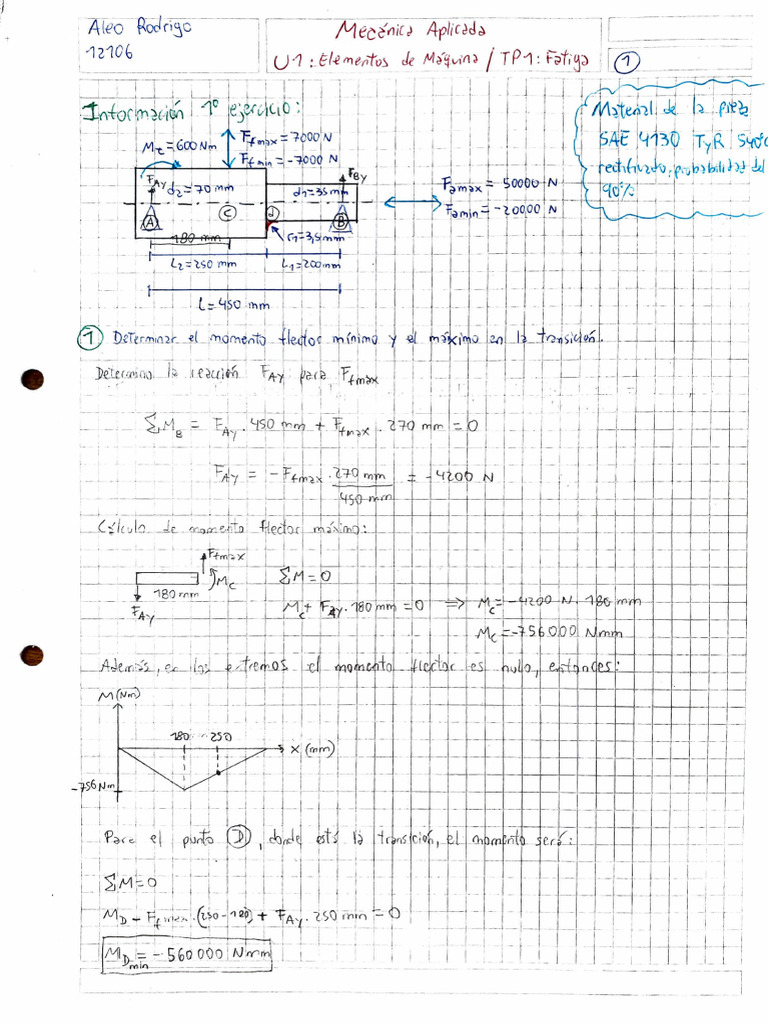 Aleo Rodrigo
12106
Mecánica Aplicada
U1: Elementos de Máquina / TP1: Fatiga
1
Información 1° ejercicio:
Material de la pieza
SAE 4130 TyR 540°C
rectificado, probabilidad del
90%
Mt = 600 Nm
Ffmax = 7000 N
Ffmin = -7000 N
FAy
d2 = 70 mm
d1 = 35 mm
FBy
Famax = 50000 N
Famin = -20000 N
A
C
d
B
180 mm
r1 = 3,5 mm
L2 = 250 mm
L1 = 200 mm
L = 450 mm
1 Determinar el momento flector mínimo y el máximo en la transición.
Determino la reacción FAy para Ffmax
∑MB = FAy . 450 mm + Ffmax . 270 mm = 0
FAy = - Ffmax . 270 mm / 450 mm = -4200 N
Cálculo de momento flector máximo:
Ffmax
180 mm
MC
FAy
∑M = 0
MC + FAy . 180 mm = 0 ⇒ MC = -4200 N . 180 mm
MC = -756000 Nmm
Además, en los extremos el momento flector es nulo, entonces:
M (Nm)
180 250
x (mm)
-756 Nm
Para el punto D, donde está la transición, el momento será:
∑M = 0
MD - Ffmax . (250-180) + FAy . 250 mm = 0
MDmin = -560000 Nmm